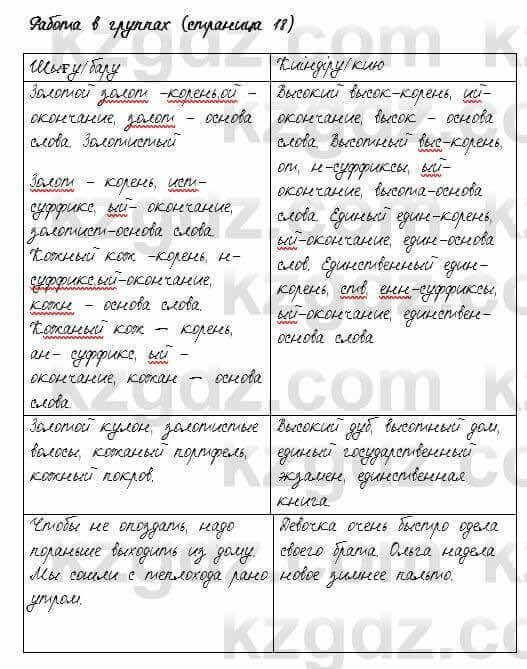 Работа в группах (страница 18)
Шығу/бару
Золотой золот -корень,ой -
окончание, золот - основа
слова Золотистый
Золот - корень, ист-
суффикс, ый- окончание,
золотист-основа слова.
Кожный кож -корень, н-
суффикс,ый-окончание,
кожн - основа слова.
Кожаный кож - корень,
ан- суффикс, ый -
окончание, кожан - основа
слова.
Киіндіру/кию
Высокий высок-корень, ий-
окончание, высок - основа
слова. Высотный выс-корень,
от, н-суффиксы, ый-
окончание, высота-основа
слова Единый един-корень,
ый-окончание, един-основа
слов, Единственный един-
корень, ств, енн-суффиксы,
ый-окончание, единствен-
основа слова
Золотой кулон, золотистые
волосы, кожаный портфель,
кожный покров.
Высокий дуб, высотный дом,
единый государственный
экзамен, единственная
книга
Чтобы не опоздать, надо
пораньше выходить из дому.
Мы сошли с теплохода рано
утром.
Девочка очень быстро одела
своего брата. Ольга надела
новое зимнее пальто.
kzgdz.com